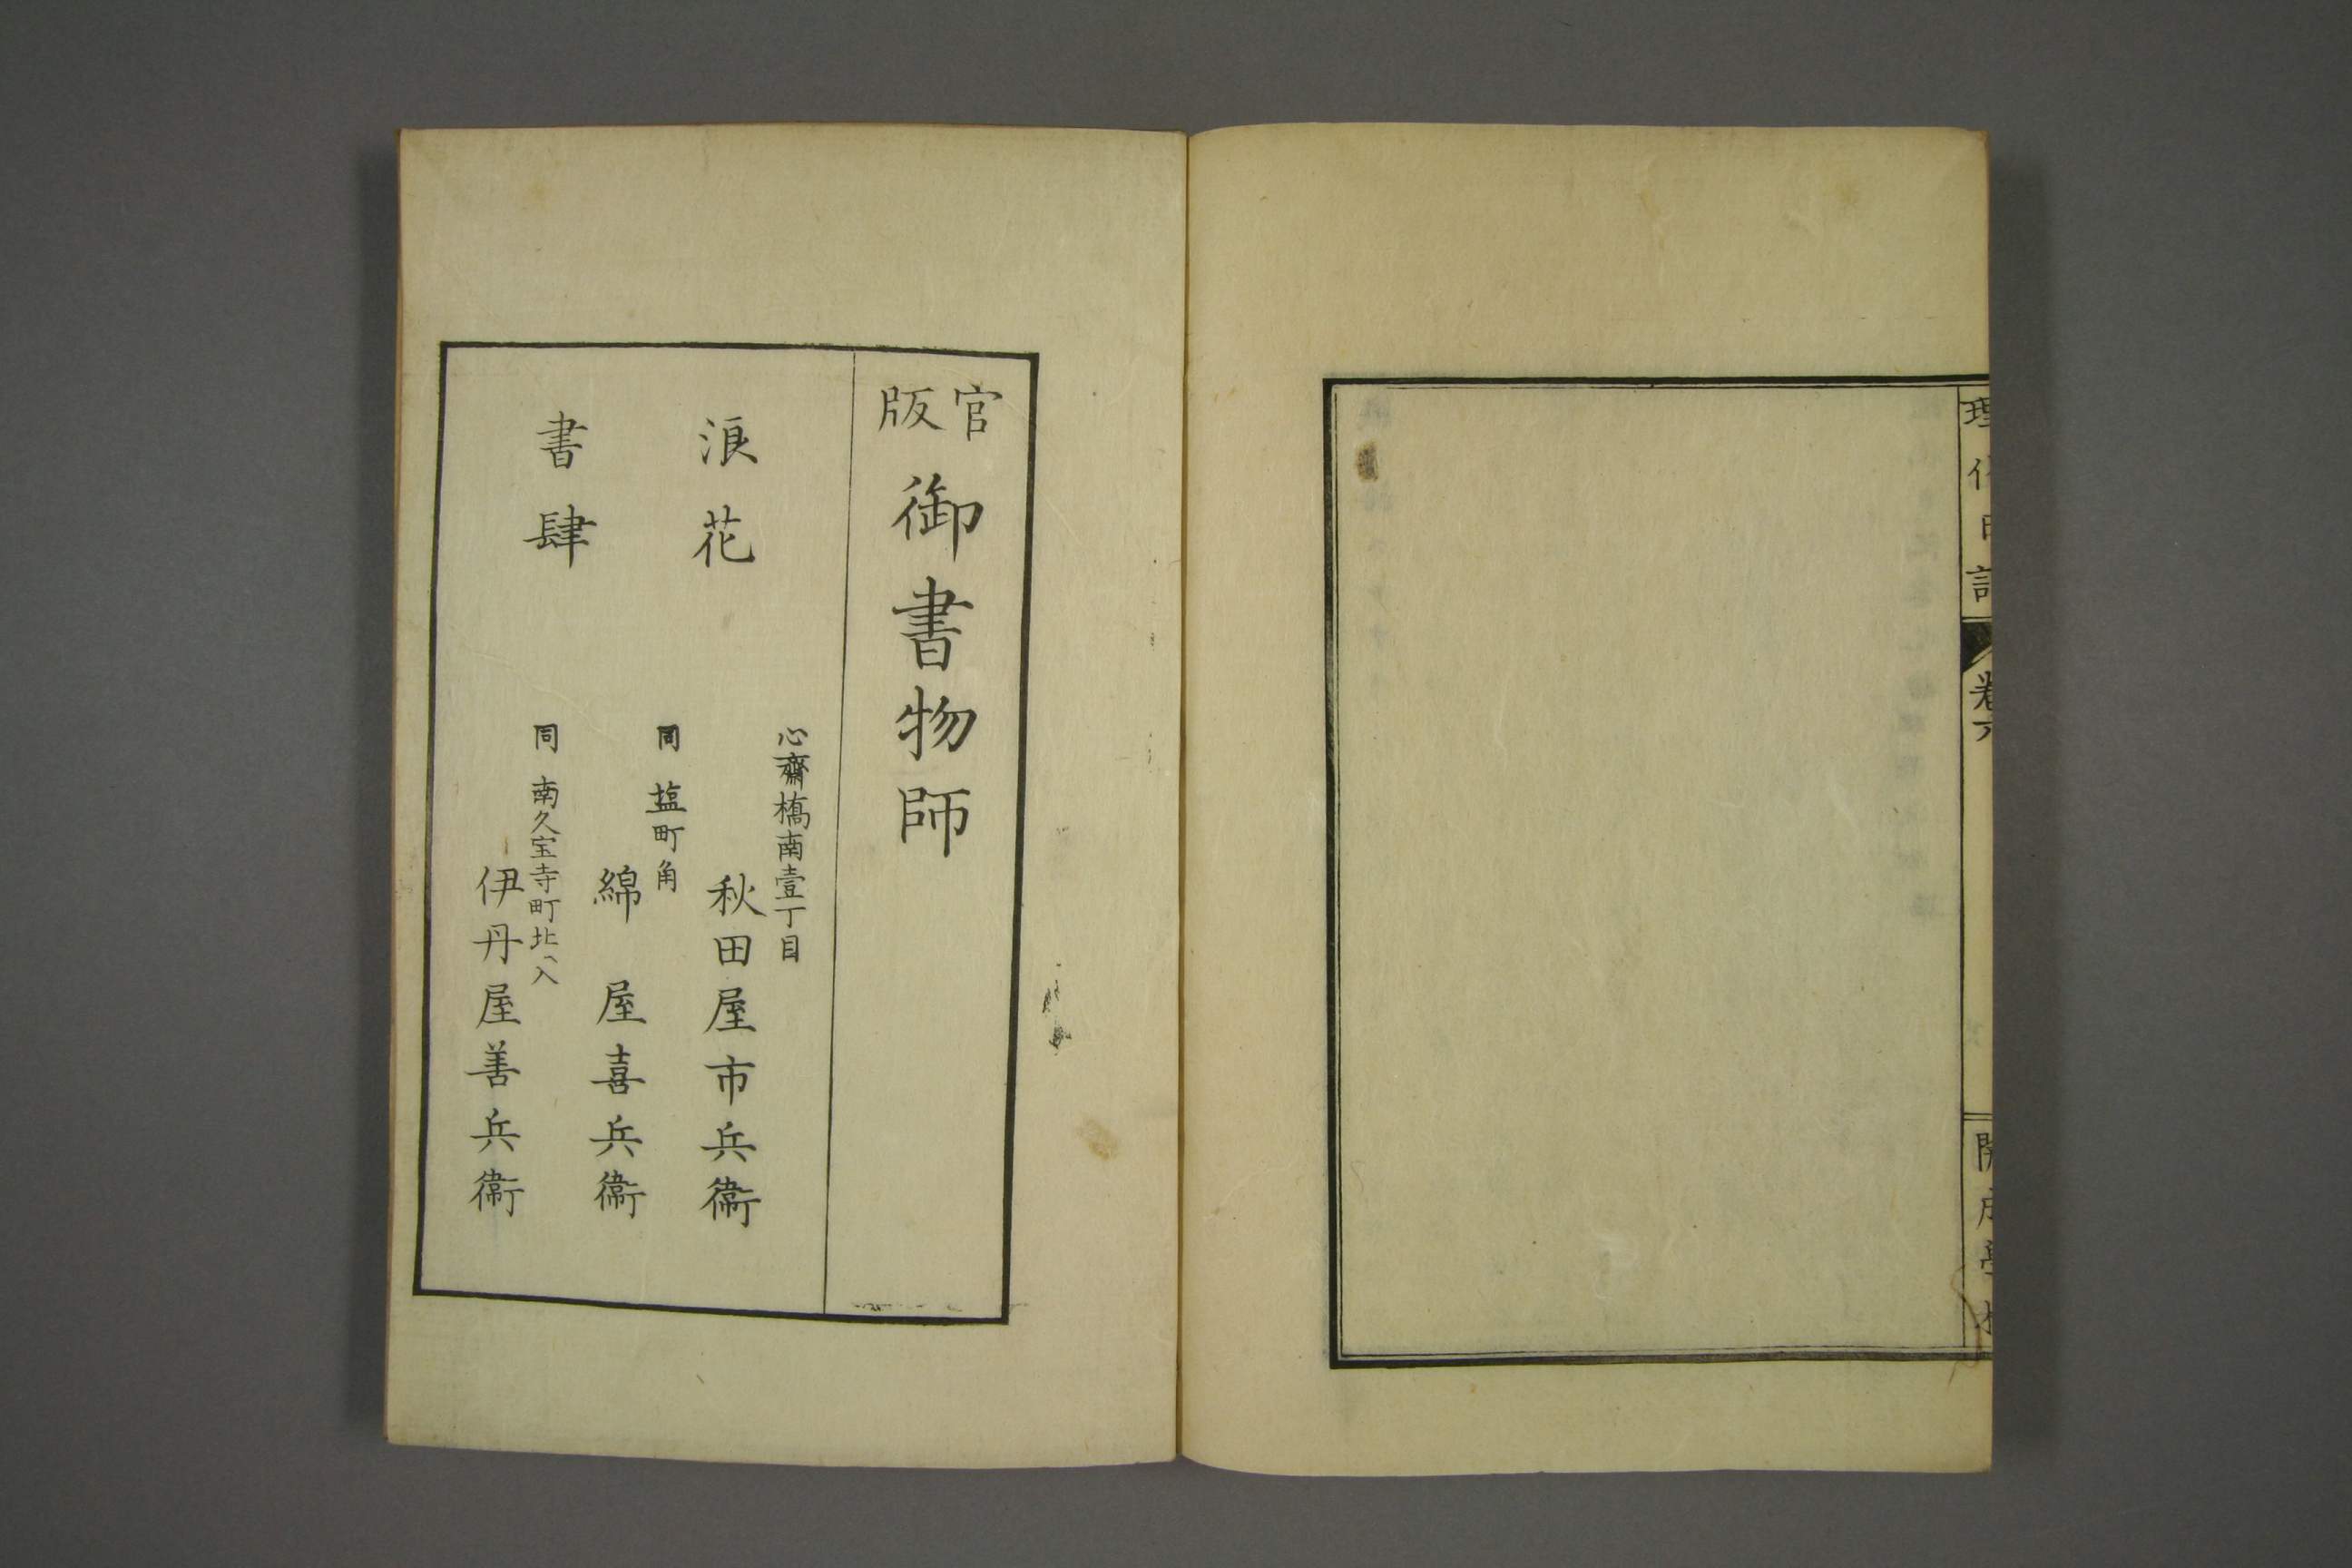 理化日記
卷六
開成學校
官版
御書物師
浪花
書肆
心齋橋南壹丁目
秋田屋市兵衞
同 塩町角
綿屋喜兵衞
同 南久宝寺町北ヘ入
伊丹屋善兵衞